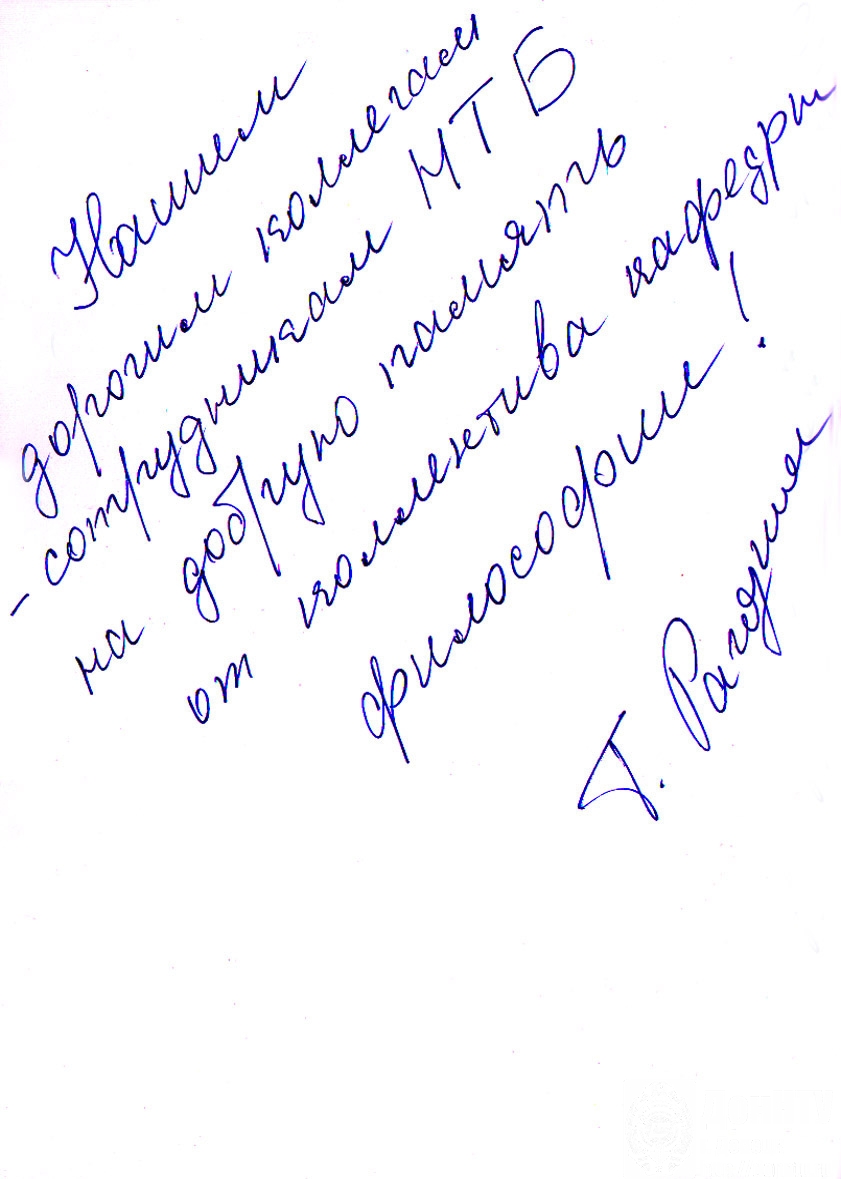 Нашим
дорогим коллегам
- сотрудникам НТБ
на добрую память
от коллектива кафедры
философии!
Т.